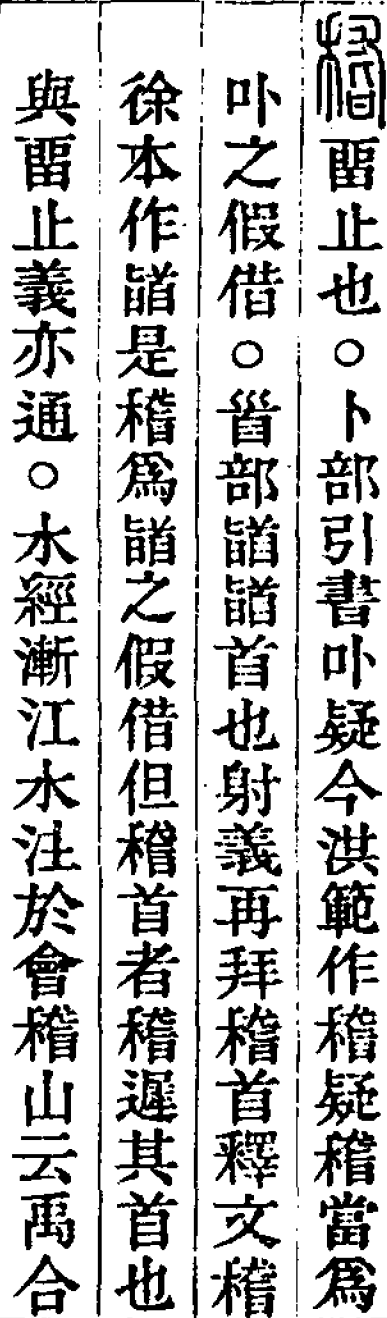 稽畱止也○卜部引書卟疑今洪範作稽疑稽當爲
卟之假借○𩠐部䭫䭫首也射義再拜稽首釋文稽
徐本作䭫是稽爲䭫之假借但稽首者稽遲其首也
與畱止義亦通○水經漸江水注於會稽山云禹合